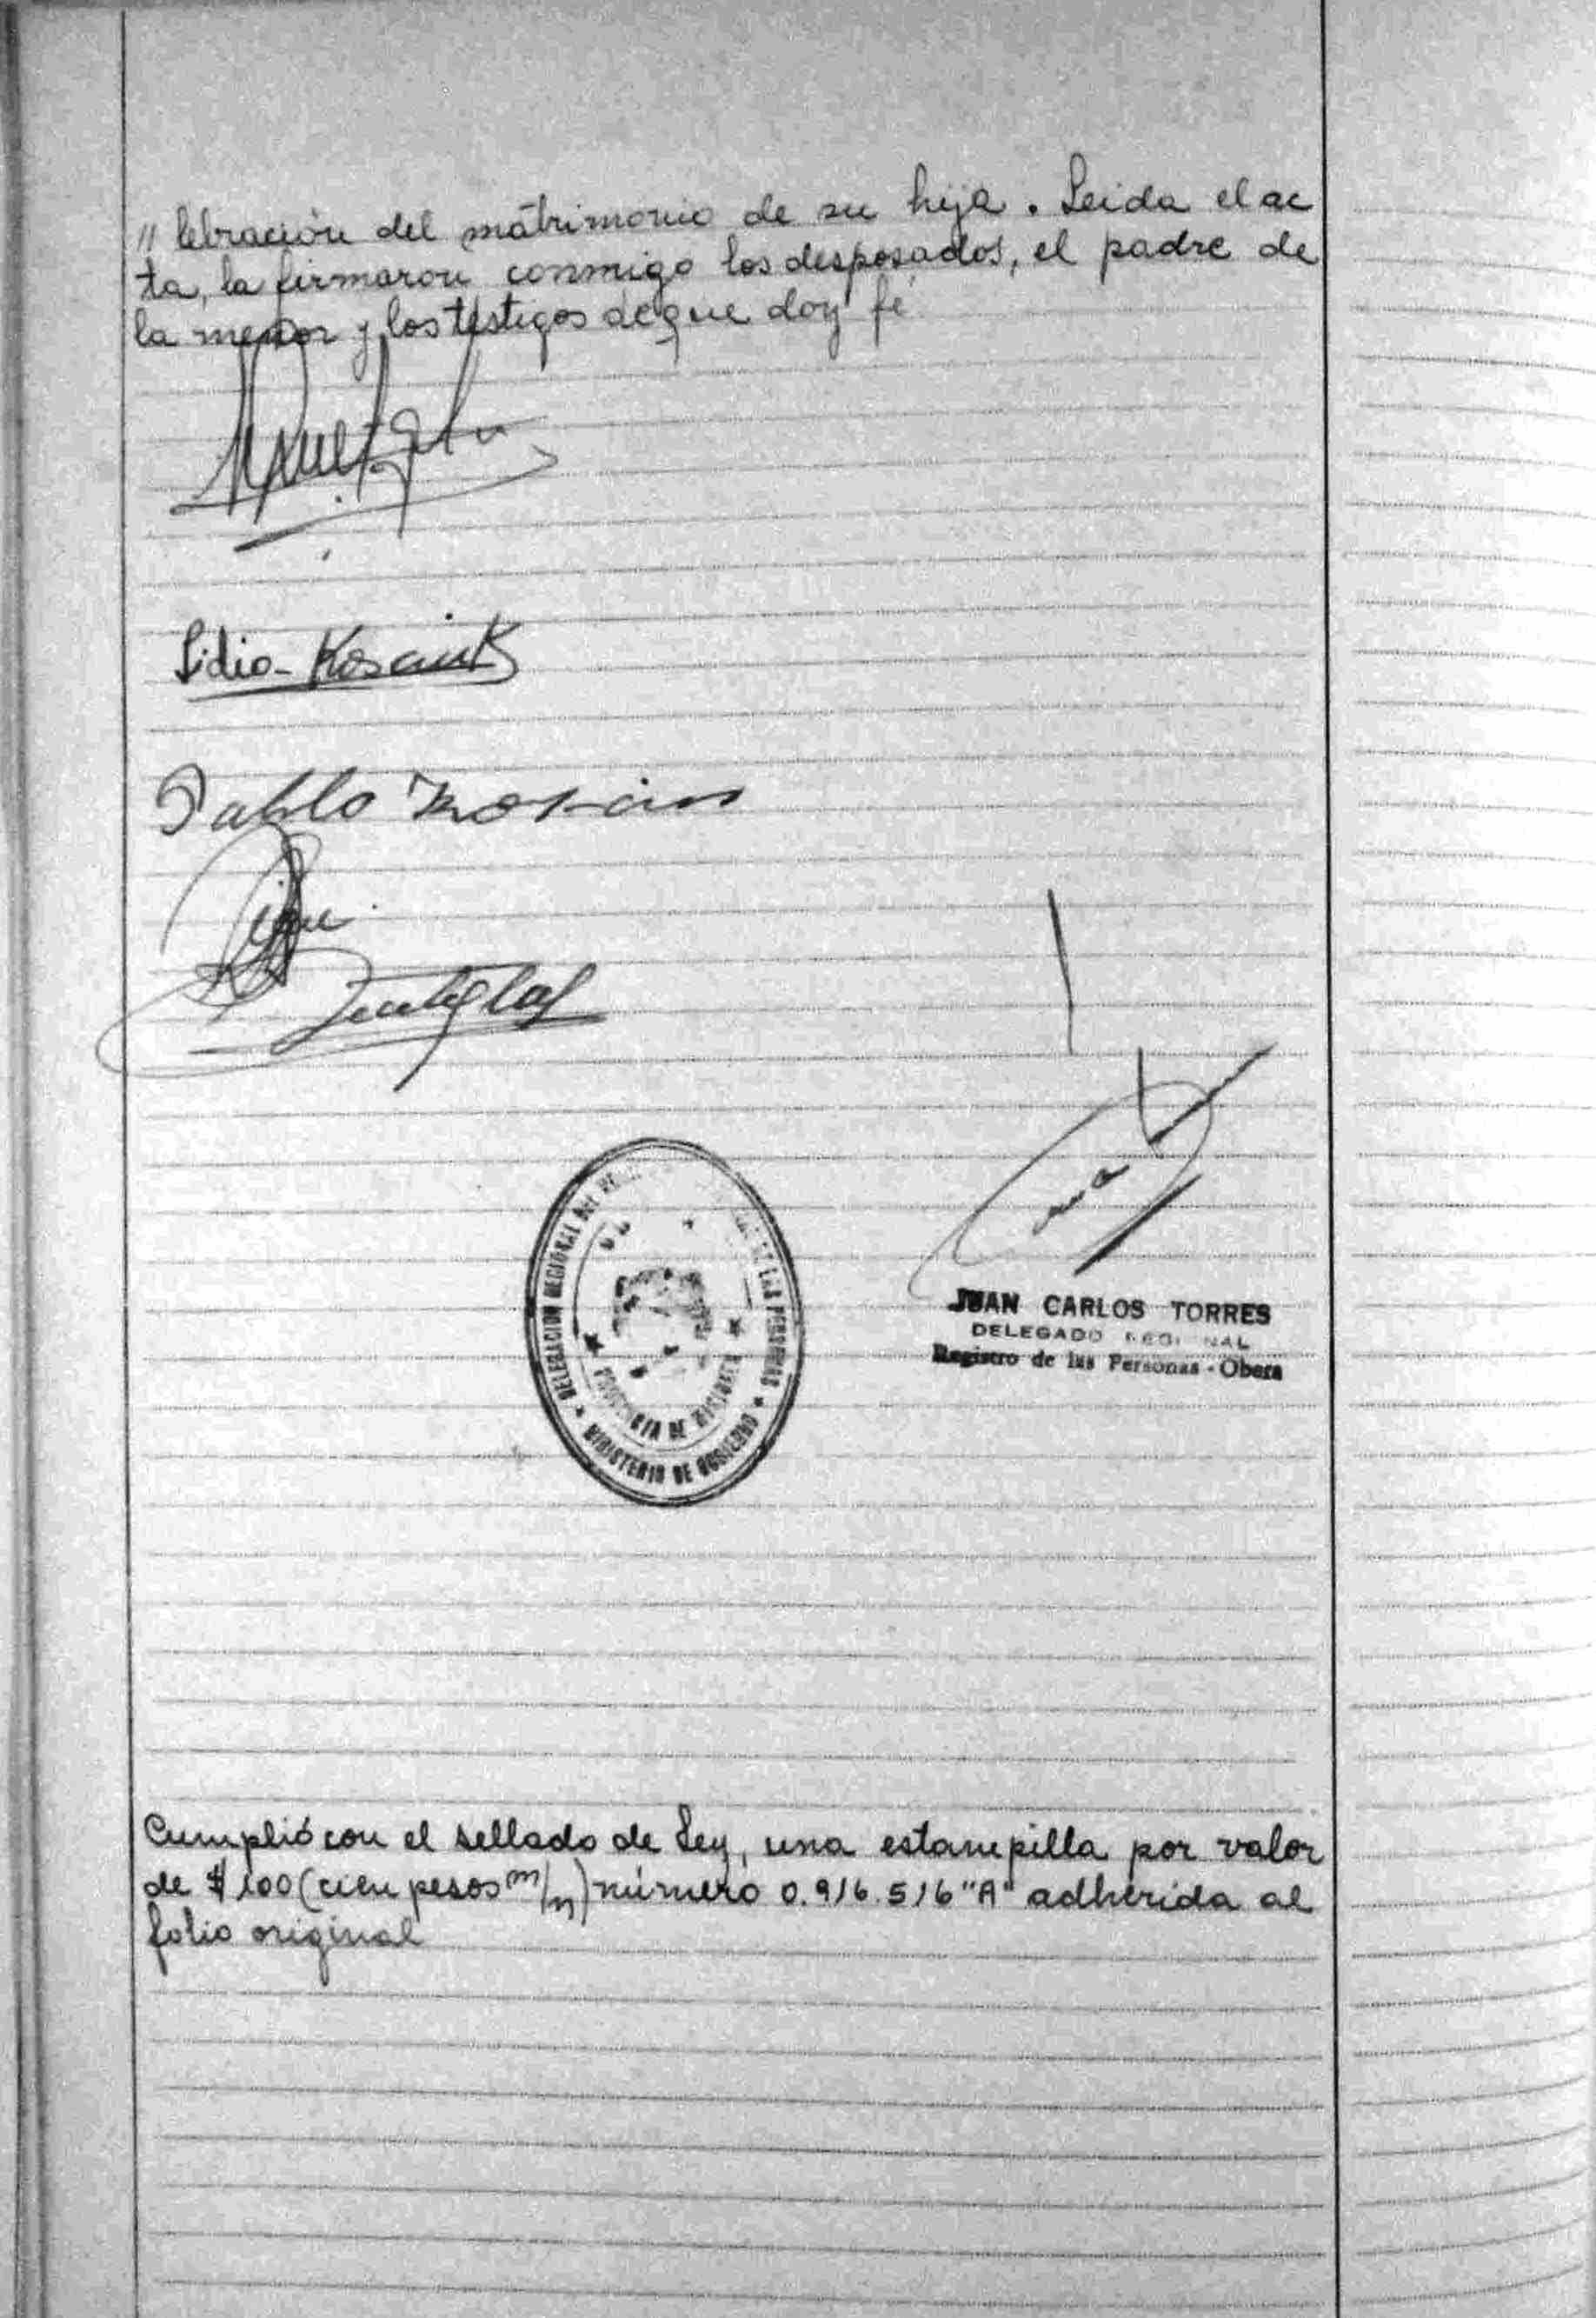 // lebración del matrimonio de su hija. Leida el ac
ta, la firmaron conmigo los desposados, el padre de
la menor y los testigos de que doy fé.
Lidia
Pablo
DELEGACION REGIONAL DEL DE LAS PERSONAS
PROVINCIA DE MISIONES
MINISTERIO DE GOBIERNO
JUAN CARLOS TORRES
DELEGADO REGIONAL
Registro de las Personas - Obera
Cumplió con el sellado de Ley, una estampilla por valor
de $100 (cien pesos m/n) número 0.916.516 "A" adherida al
folio original